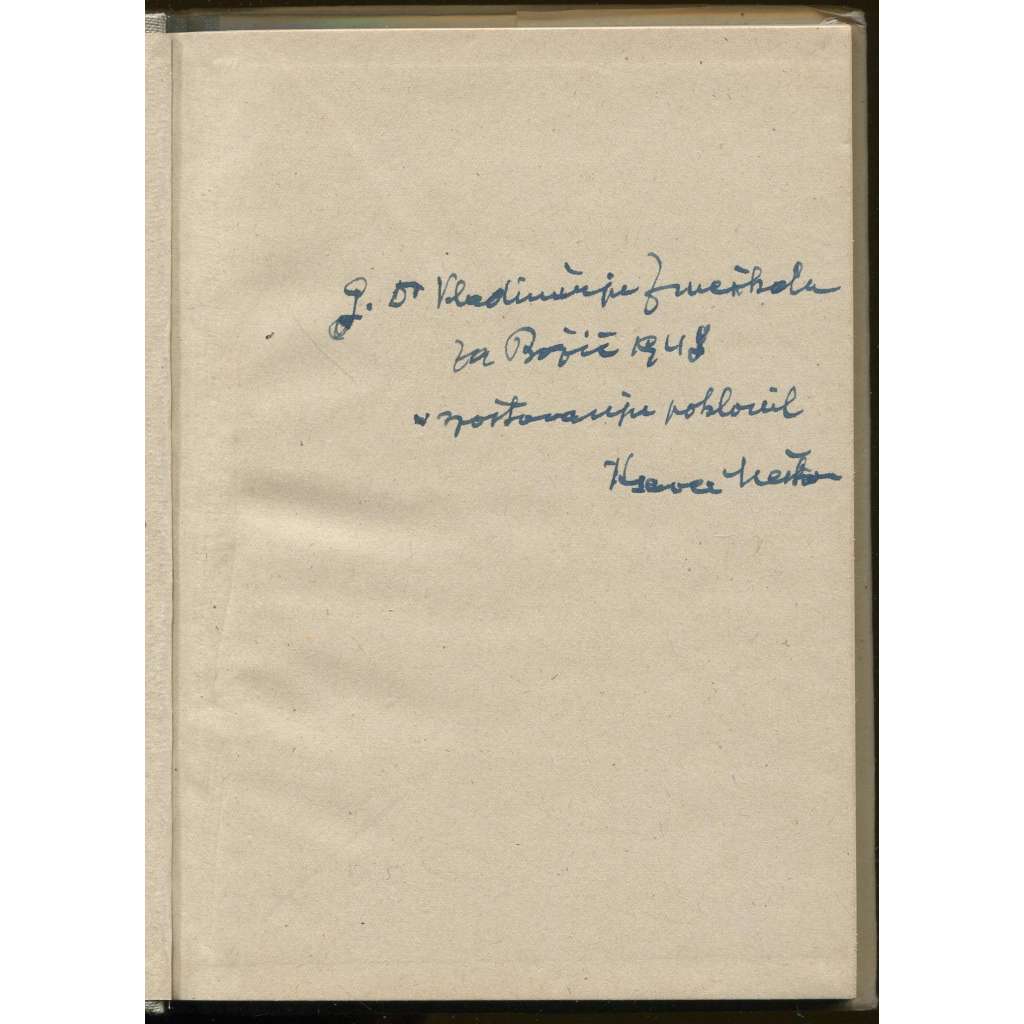 G. Dr Vladimirju Zmeškalu
za Božič 1948
v spoštovanju poklonil
Ksaver Meško